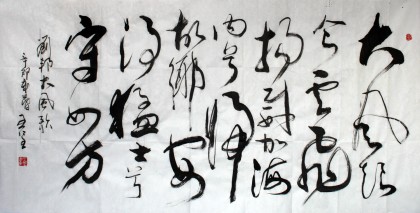 大风起
兮云飞
扬威加海
内兮归
故乡安
得猛士兮
守四方
刘邦大风歌
辛卯